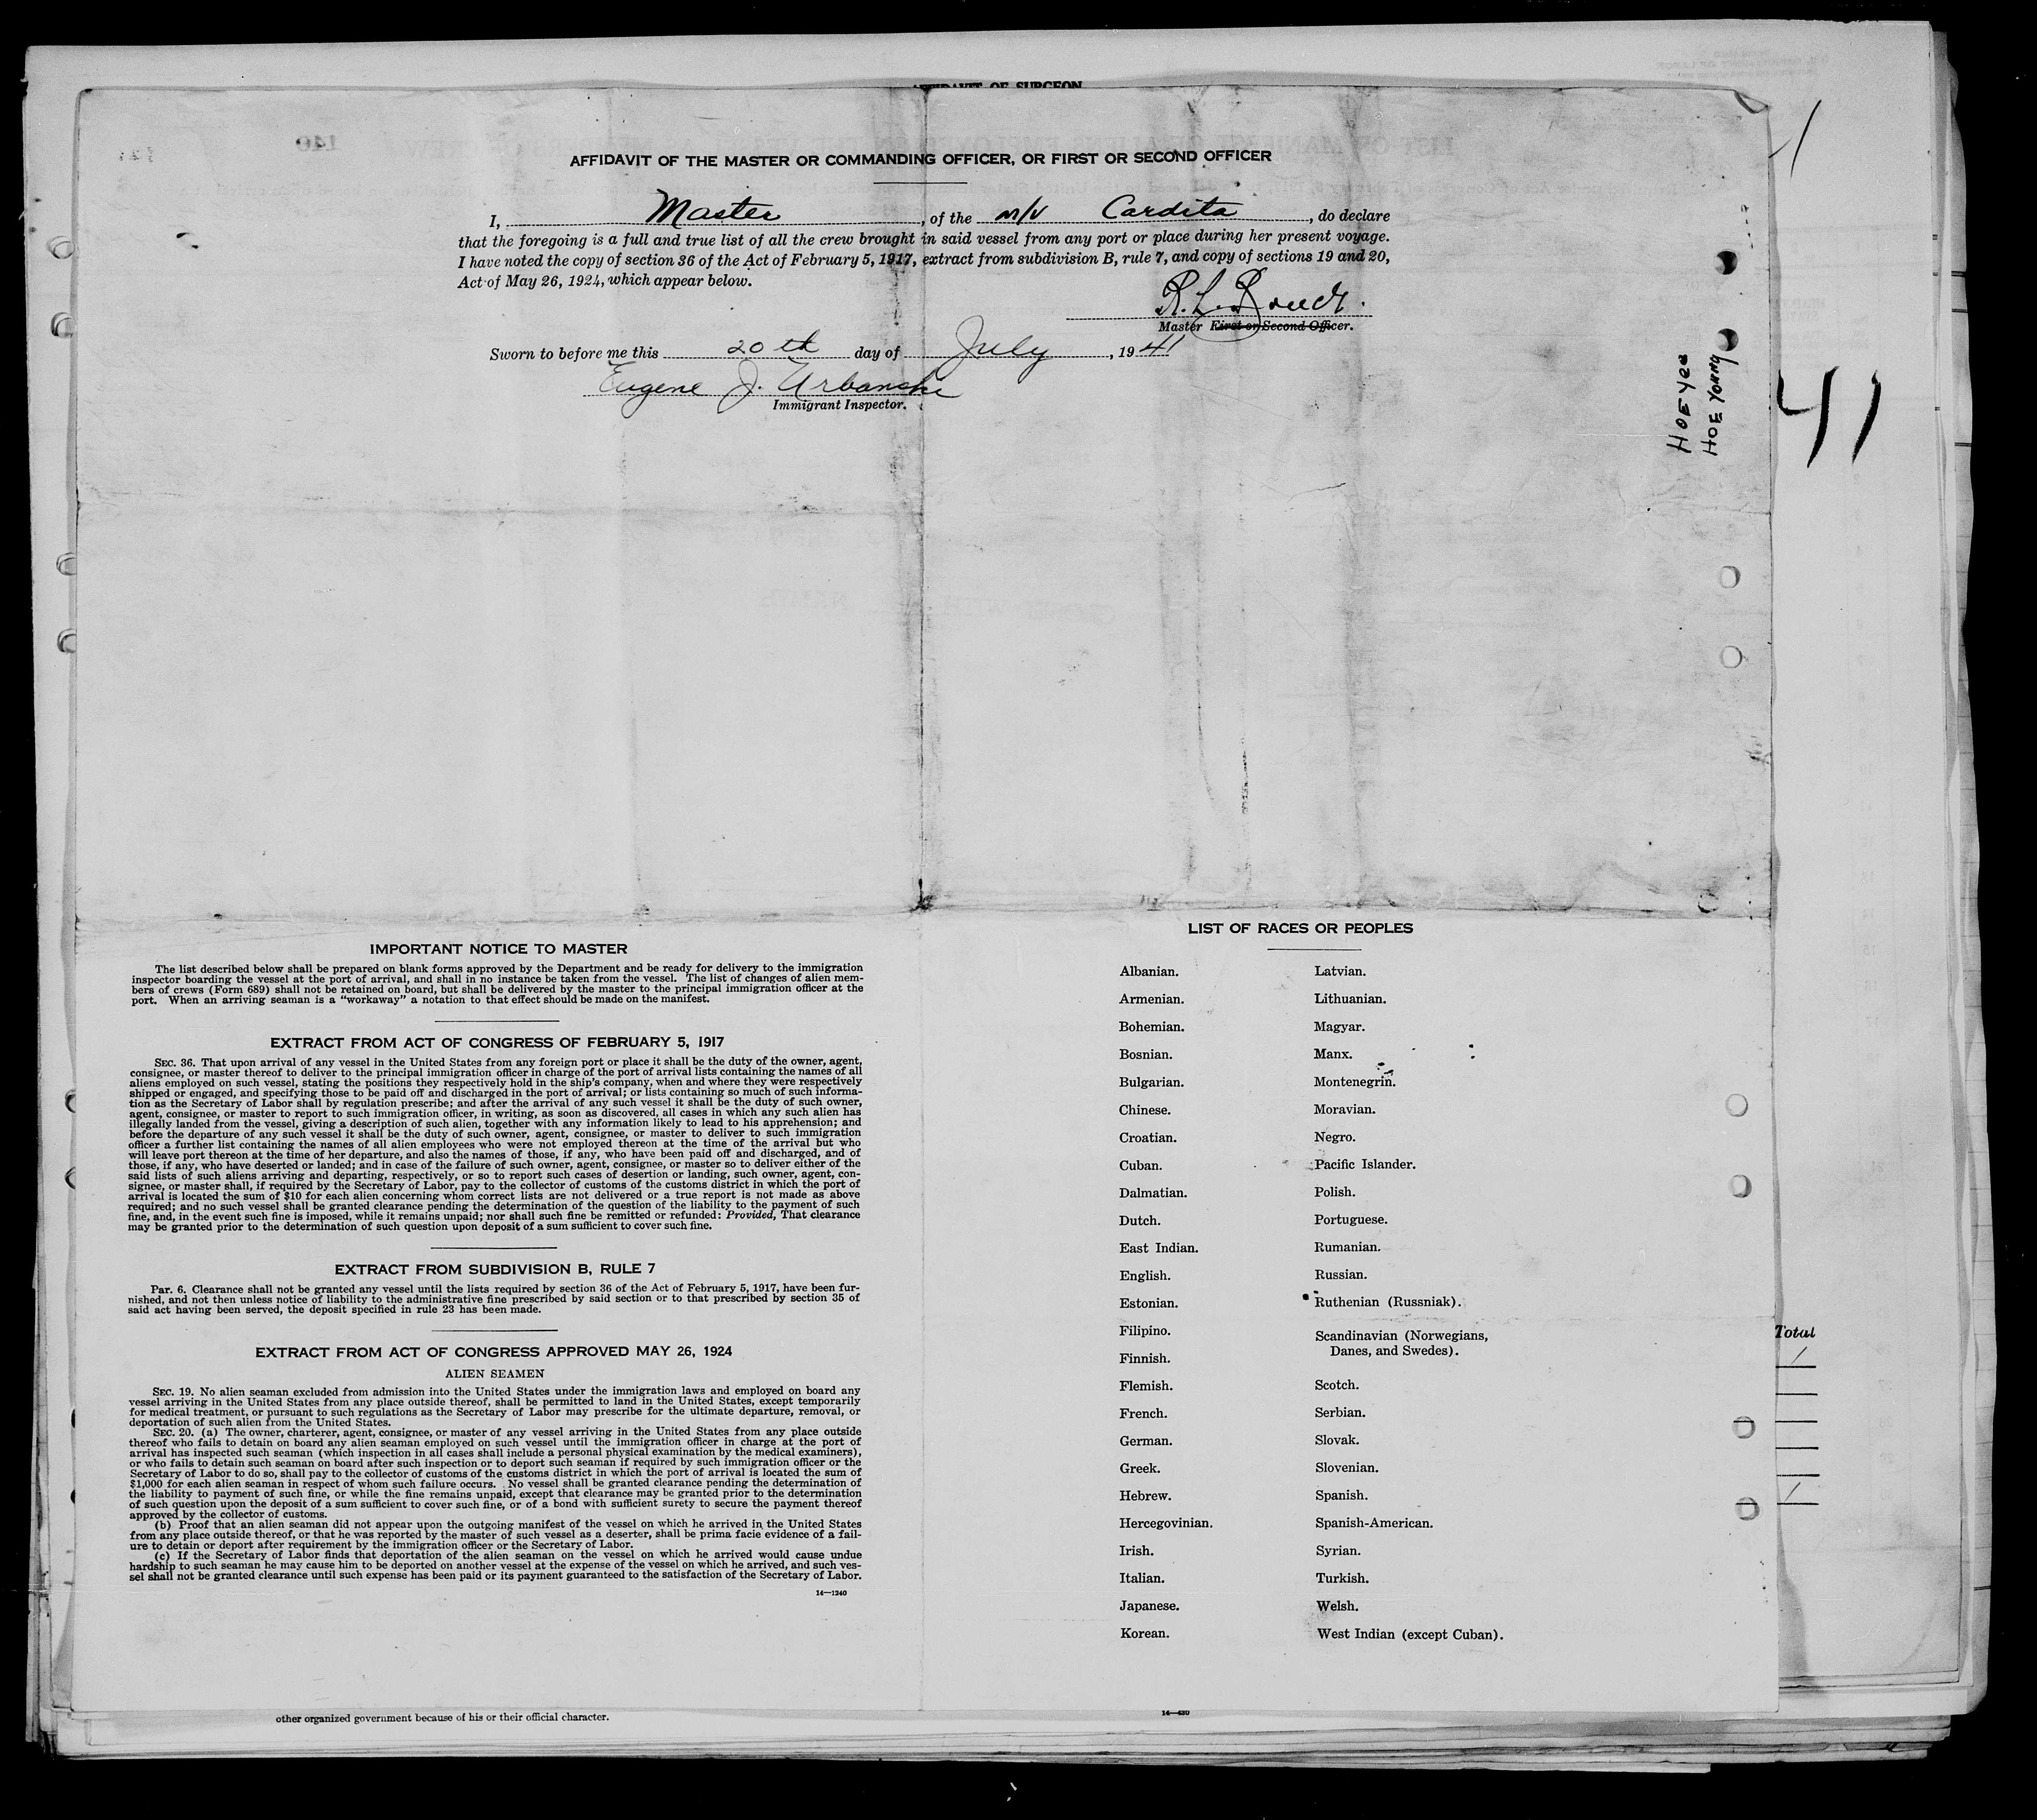 AFFIDAVIT OF SURGEON
AFFIDAVIT OF THE MASTER OR COMMANDING OFFICER, OR FIRST OR SECOND OFFICER
I, Master, of the m/v Cardita, do declare
that the foregoing is a full and true list of all the crew brought in said vessel from any port or place during her present voyage.
I have noted the copy of section 36 of the Act of February 5, 1917, extract from subdivision B, rule 7, and copy of sections 19 and 20,
Act of May 26, 1924, which appear below.
R. L.
Master First or Second Officer.
Sworn to before me this 20th day of July, 1941
Eugene J. Urbanske
Immigrant Inspector.
HOE Yee
HOE YOUNG
41
IMPORTANT NOTICE TO MASTER
The list described below shall be prepared on blank forms approved by the Department and be ready for delivery to the immigration
inspector boarding the vessel at the port of arrival, and shall in no instance be taken from the vessel. The list of changes of alien mem-
bers of crews (Form 689) shall not be retained on board, but shall be delivered by the master to the principal immigration officer at the
port. When an arriving seaman is a “workaway” a notation to that effect should be made on the manifest.
EXTRACT FROM ACT OF CONGRESS OF FEBRUARY 5, 1917
SEC. 36. That upon arrival of any vessel in the United States from any foreign port or place it shall be the duty of the owner, agent,
consignee, or master thereof to deliver to the principal immigration officer in charge of the port of arrival lists containing the names of all
aliens employed on such vessel, stating the positions they respectively hold in the ship's company, when and where they were respectively
shipped or engaged, and specifying those to be paid off and discharged in the port of arrival; or lists containing so much of such informa-
tion as the Secretary of Labor shall by regulation prescribe; and after the arrival of any such vessel it shall be the duty of such owner,
agent, consignee, or master to report to such immigration officer, in writing, as soon as discovered, all cases in which any such alien has
illegally landed from the vessel, giving a description of such alien, together with any information likely to lead to his apprehension; and
before the departure of any such vessel it shall be the duty of such owner, agent, consignee, or master to deliver to such immigration
officer a further list containing the names of all alien employees who were not employed thereon at the time of the arrival but who
will leave port thereon at the time of her departure, and also the names of those, if any, who have been paid off and discharged, and of
those, if any, who have deserted or landed; and in case of the failure of such owner, agent, consignee, or master so to deliver either of the
said lists of such aliens arriving and departing, respectively, or so to report such cases of desertion or landing, such owner, agent, con-
signee, or master shall, if required by the Secretary of Labor, pay to the collector of customs of the customs district in which the port of
arrival is located the sum of $10 for each alien concerning whom correct lists are not delivered or a true report is not made as above
required; and no such vessel shall be granted clearance pending the determination of the question of the liability to the payment of such
fine, and, in the event such fine is imposed, while it remains unpaid; nor shall such fine be remitted or refunded: Provided, That clearance
may be granted prior to the determination of such question upon deposit of a sum sufficient to cover such fine.
EXTRACT FROM SUBDIVISION B, RULE 7
Par. 6. Clearance shall not be granted any vessel until the lists required by section 36 of the Act of February 5, 1917, have been fur-
nished, and not then unless notice of liability to the administrative fine prescribed by said section or to that prescribed by section 35 of
said act having been served, the deposit specified in rule 23 has been made.
EXTRACT FROM ACT OF CONGRESS APPROVED MAY 26, 1924
ALIEN SEAMEN
SEC. 19. No alien seaman excluded from admission into the United States under the immigration laws and employed on board any
vessel arriving in the United States from any place outside thereof, shall be permitted to land in the United States, except temporarily
for medical treatment, or pursuant to such regulations as the Secretary of Labor may prescribe for the ultimate departure, removal, or
deportation of such alien from the United States.
SEC. 20. (a) The owner, charterer, agent, consignee, or master of any vessel arriving in the United States from any place outside
thereof who fails to detain on board any alien seaman employed on such vessel until the immigration officer in charge at the port of
arrival has inspected such seaman (which inspection in all cases shall include a personal physical examination by the medical examiners),
or who fails to detain such seaman on board after such inspection or to deport such seaman if required by such immigration officer or the
Secretary of Labor to do so, shall pay to the collector of customs of the customs district in which the port of arrival is located the sum of
$1,000 for each alien seaman in respect of whom such failure occurs. No vessel shall be granted clearance pending the determination of
the liability to payment of such fine, or while the fine remains unpaid, except that clearance may be granted prior to the determination
of such question upon the deposit of a sum sufficient to cover such fine, or of a bond with sufficient surety to secure the payment thereof
approved by the collector of customs.
(b) Proof that an alien seaman did not appear upon the outgoing manifest of the vessel on which he arrived in the United States
from any place outside thereof, or that he was reported by the master of such vessel as a deserter, shall be prima facie evidence of a fail-
ure to detain or deport after requirement by the immigration officer or the Secretary of Labor.
(c) If the Secretary of Labor finds that deportation of the alien seaman on the vessel on which he arrived would cause undue
hardship to such seaman he may cause him to be deported on another vessel at the expense of the vessel on which he arrived, and such ves-
sel shall not be granted clearance until such expense has been paid or its payment guaranteed to the satisfaction of the Secretary of Labor.
14—1240
LIST OF RACES OR PEOPLES
Albanian.
Armenian.
Bohemian.
Bosnian.
Bulgarian.
Chinese.
Croatian.
Cuban.
Dalmatian.
Dutch.
East Indian.
English.
Estonian.
Filipino.
Finnish.
Flemish.
French.
German.
Greek.
Hebrew.
Hercegovinian.
Irish.
Italian.
Japanese.
Korean.
Latvian.
Lithuanian.
Magyar.
Manx.
Montenegrin.
Moravian.
Negro.
Pacific Islander.
Polish.
Portuguese.
Rumanian.
Russian.
Ruthenian (Russniak).
Scandinavian (Norwegians,
Danes, and Swedes).
Scotch.
Serbian.
Slovak.
Slovenian.
Spanish.
Spanish-American.
Syrian.
Turkish.
Welsh.
West Indian (except Cuban).
Total
other organized government because of his or their official character.
14—430